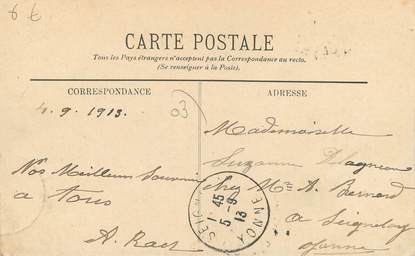 6 €
CARTE POSTALE
Tous les Pays étrangers n'acceptent pas la Correspondance au recto.
(Se renseigner à la Poste).
CORRESPONDANCE
ADRESSE
4. 9. 1913.
03
Mademoiselle
Suzanne
chez M A. Bernard
a Seignelay
Yonne
Nos Meilleurs Souvenirs
a tous
A.
SEIGN
1 45
5-9
13
YONNE